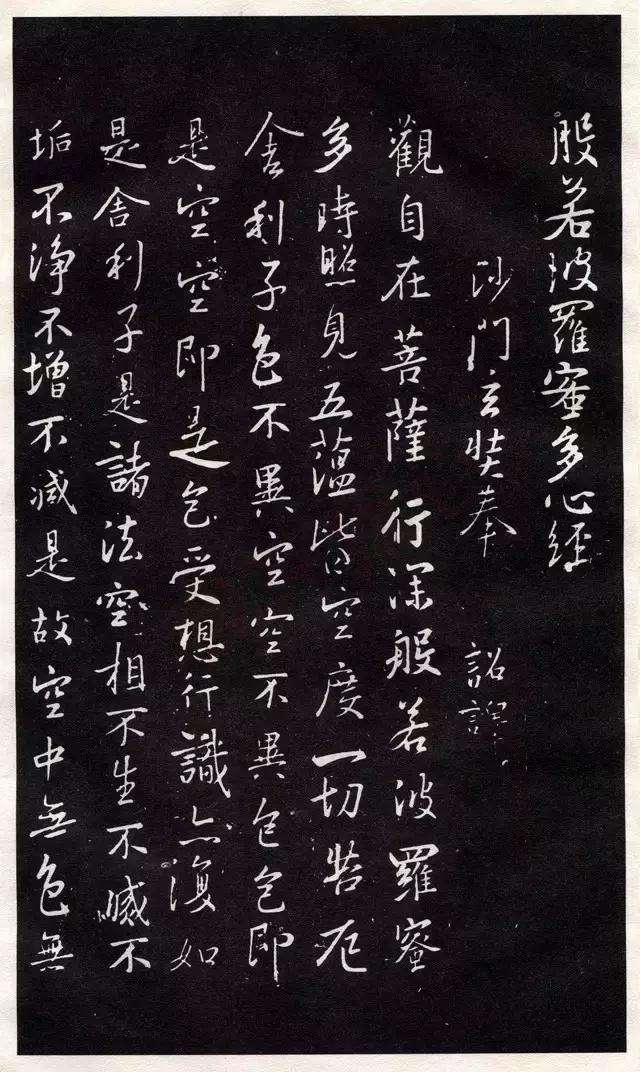 般若波羅蜜多心經
沙門玄奘奉 詔譯
觀自在菩薩行深般若波羅蜜
多時照見五蘊皆空度一切苦厄
舍利子色不異空空不異色色即
是空空即是色受想行識亦復如
是舍利子是諸法空相不生不滅不
垢不淨不增不減是故空中無色無